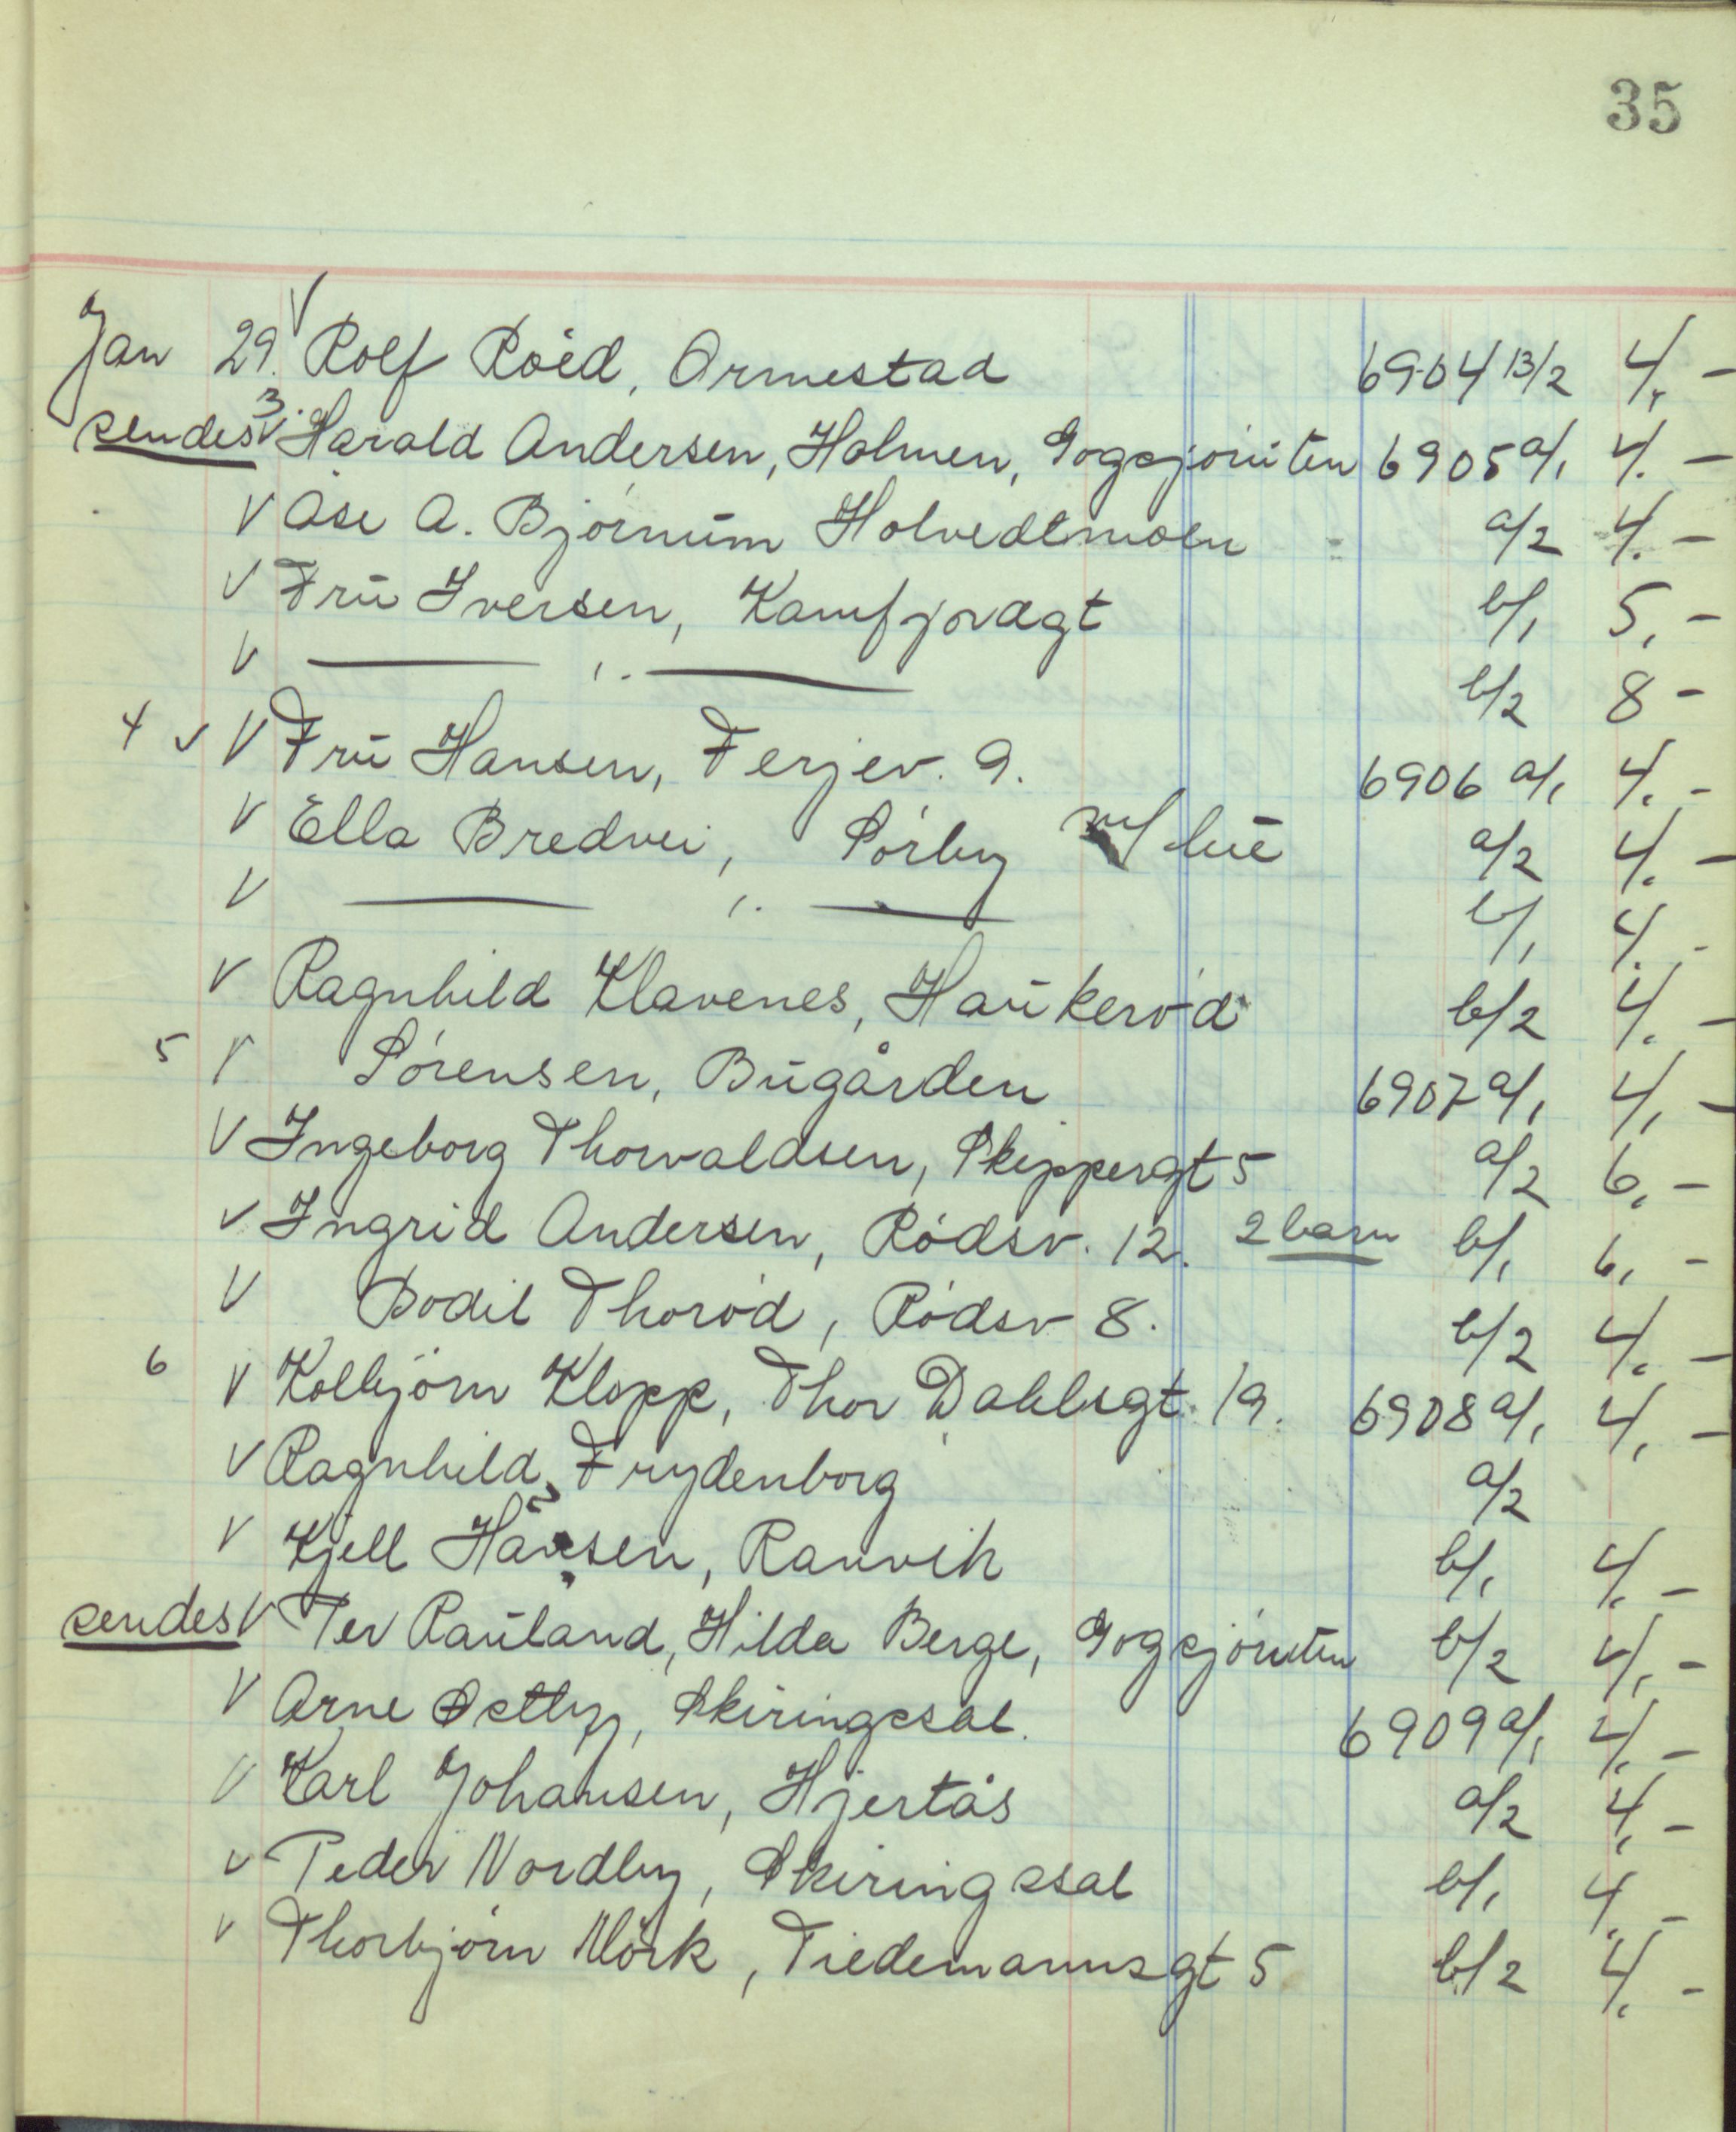 35
Jan 29. V Rolf Röed, Ormestad 6904 B/2 4,-
sendes 3. V Harald Andersen, Holmen, Gogsjöruten 6905 a/1 4.-
V Åse A. Bjørnum Holvedtmoen a/2 4.-
V Frü Iversen, Kamfjordgt b/1 5,-
V — ,.— b/2 8-
4 v V Frü Hansen, Ferjev. 9. 6906 a/1 4.-
V Ella Bredvei, Sørby m/ lue a/2 4.-
V — ,.— b/1 4.-
V Ragnhild Klavenes, Haükerød b/2 4.-
5 V Sørensen, Bügården 6907 a/1 4,-
V Ingeborg Thorvaldsen, Skippergt 5 a/2 6,-
V Ingrid Andersen, Rødsv. 12. 2 barn b/1 6,-
V Bodil Thorød, Rødsv 8. b/2 4.-
6 V Kolbjörn Klopp, Thor Dahlsgt. 19. 6908 a/1 4,-
V Ragnhild, Frydenborg a/2
V Kjell Hansen, Ranvik b/1 4.-
sendes V Ter Raüland, Hilda Berge, Gogsjöruten b/2 4,-
V Arne Østby, Skiringssal. 6909 a/1 4.-
V Karl Johansen, Hjertås a/2 4,-
V Peder Nordby, Skiringssal b/1 4.-
V Thorbjørn Mörk, Tiedemannsgt 5 b/2 4.-